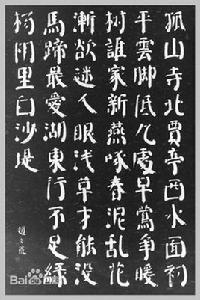 孤山寺北賈亭西水面初
平雲脚低几處早鶯爭暖
树誰家新燕啄春泥乱花
漸欲迷人眼浅草才能没
馬蹄最愛湖東行不足綠
杨阴里白沙堤
Bai百科